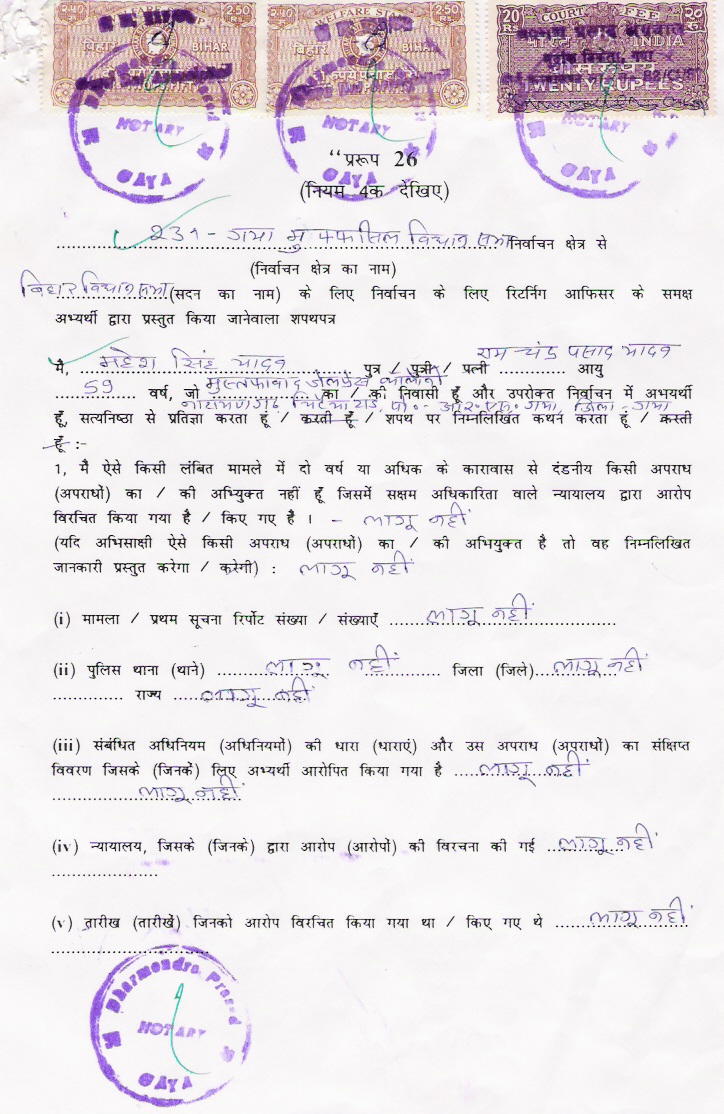 २.५० WELFARE STAMP 2.50
रु. RS.
बिहार BIHAR
२.५० WELFARE STAMP 2.50
रु. RS.
बिहार BIHAR
20 COURT FEE २०
RS
भारत INDIA
TWENTY RUPEES
NOTARY
GAYA
NOTARY
GAYA
NOTARY
GAYA
“प्ररूप 26
(नियम 4क देखिए)
231 - गया मुफ्फसिल विधान सभा निर्वाचन क्षेत्र से
(निर्वाचन क्षेत्र का नाम)
बिहार विधान सभा (सदन का नाम) के लिए निर्वाचन के लिए रिटर्निंग आफिसर के समक्ष
अभ्यर्थी द्वारा प्रस्तुत किया जानेवाला शपथपत्र
मै, महेश सिंह यादव पुत्र / पुत्री / पत्नी राम चंद्र प्रसाद यादव आयु
59 वर्ष, जो मुस्तफाबाद का / की निवासी हूँ और उपरोक्त निर्वाचन में अभयर्थी
रोड, पो०- आर० एस० गया, जिला - गया
हूँ, सत्यनिष्ठा से प्रतिज्ञा करता हूं / करती हूँ / शपथ पर निम्नलिखित कथन करता हूं / करती
हूँ :-
1, मै ऐसे किसी लंबित मामले में दो वर्ष या अधिक के कारावास से दंडनीय किसी अपराध
(अपराधों) का / की अभियुक्त नहीं हूँ जिसमें सक्षम अधिकारिता वाले न्यायालय द्वारा आरोप
विरचित किया गया है / किए गए है । - लागू नहीं
(यदि अभिसाक्षी ऐसे किसी अपराध (अपराधों) का / की अभियुक्त है तो वह निम्नलिखित
जानकारी प्रस्तुत करेगा / करेगी) : लागू नहीं
(i) मामला / प्रथम सूचना रिर्पोट संख्या / संख्याएँ लागू नहीं
(ii) पुलिस थाना (थाने) लागू नहीं जिला (जिले) लागू नहीं
राज्य लागू नहीं
(iii) संबंधित अधिनियम (अधिनियमों) की धारा (धाराएं) और उस अपराध (अपराधों) का संक्षिप्त
विवरण जिसके (जिनके) लिए अभ्यर्थी आरोपित किया गया है लागू नहीं
लागू नहीं
(iv) न्यायालय, जिसके (जिनके) द्वारा आरोप (आरोपों) की विरचना की गई लागू नहीं
(v) तारीख (तारीखें) जिनको आरोप विरचित किया गया था / किए गए थे लागू नहीं
Dharmendra Prasad
NOTARY
GAYA